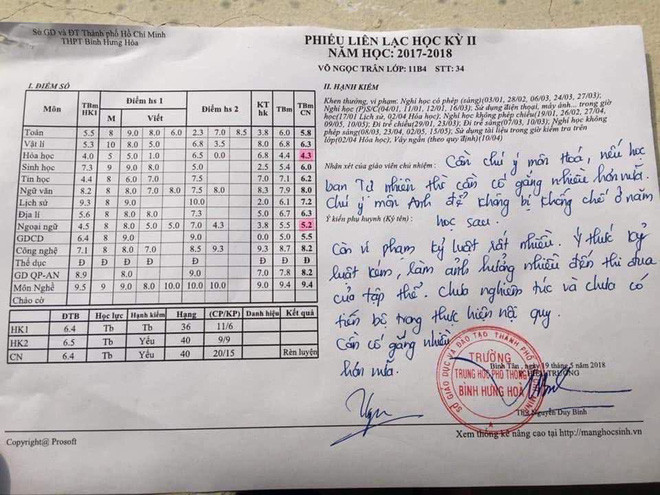 Sở GD và ĐT Thành phố Hồ Chí Minh
THPT Bình Hưng Hòa
PHIẾU LIÊN LẠC HỌC KỲ II
NĂM HỌC: 2017-2018
VÕ NGỌC TRÂN LỚP: 11B4 STT: 34
I. ĐIỂM SỐ
Môn TBm HK1 Điểm hs 1 Điểm hs 2 KT hk TBm TBm CN
M Viết
Toán 5.5 8 9.0 8.0 6.0 2.3 7.0 8.5 3.8 6.0 5.8
Vật lí 5.3 10 8.0 5.0 6.8 3.5 8.0 6.8 6.3
Hóa học 4.0 5 5.0 1.0 6.5 0.0 6.8 4.4 4.3
Sinh học 7.3 9 9.0 8.0 5.0 2.5 5.4 6.0
Tin học 4.4 8 7.5 7.5 7.0 7.1 6.2
Ngữ văn 8.2 8 8.0 7.0 8.0 7.5 8.3 7.9 8.0
Lịch sử 9.3 9.0 10.0 2.0 6.1 7.2
Địa lí 5.6 8 8.0 8.0 7.3 5.0 6.7 6.3
Ngoại ngữ 4.5 8 8.0 5.0 5.0 7.0 4.3 3.8 5.5 5.2
GDCD 6.4 9.0 9.0 0.0 5.5
Công nghệ 7.1 8 8.0 7.0 8.5 9.3 9.3 8.7 8.2
Thể dục Đ Đ Đ Đ Đ Đ
GD QP-AN 8.9 8.0 9.0 7.0 7.8 8.2
Môn Nghề 9.5 9 9.0 8.0 10.0 10.0 10.0 9.0 9.4 9.4
Chào cờ
ĐTB Học lực Hạnh kiểm Hạng (CP/KP) Danh hiệu Kết quả
HK1 6.4 Tb Tb 36 11/6
HK2 6.5 Tb Yếu 40 9/9
CN 6.4 Tb Yếu 40 20/15 Rèn luyện
II. HẠNH KIỂM
Khen thưởng, vi phạm: Nghỉ học có phép (sáng)(03/01, 28/02, 06/03, 24/03, 27/03);
Nghỉ học (P)S/C(04/01, 11/01, 12/01, 16/03); Sử dụng điện thoại, máy ảnh... trong giờ
học(17/01 Lịch sử, 02/04 Hóa học); Nghỉ học không phép chiều(19/01, 26/02, 27/04,
09/05, 10/05); Đi trễ chiều(29/01, 23/03); Đi trễ sáng(07/03, 10/03); Nghỉ học không
phép sáng(08/03, 23/04, 02/05, 15/05); Sử dụng tài liệu trong giờ kiểm tra trên
lớp(02/04 Hóa học). Vây ngăn (theo qui định)(10/04)
Nhận xét của giáo viên chủ nhiệm: Cần chú ý môn Hoá, nếu học
ban Tự nhiên thì cần cố gắng nhiều hơn nữa.
Chú ý môn Anh để không bị khống chế ở năm
học sau.
Ý kiến phụ huynh (Ký tên):
Còn vi phạm kỷ luật rất nhiều. Ý thức kỷ
luật kém, làm ảnh hưởng nhiều đến thi đua
của tập thể. Chưa nghiêm túc và chưa có
tiến bộ trong thực hiện nội quy.
Cần cố gắng nhiều
hơn nữa.
Bình Tân, ngày 19 tháng 5 năm 2018
HIỆU TRƯỞNG
SỞ GIÁO DỤC VÀ ĐÀO TẠO THÀNH PHỐ
TRƯỜNG
TRUNG HỌC PHỔ THÔNG
BÌNH HƯNG HOÀ
ThS Nguyễn Duy Bình
Copyright@ Prosoft
Xem thống kê nâng cao tại http://manghocsinh.vn